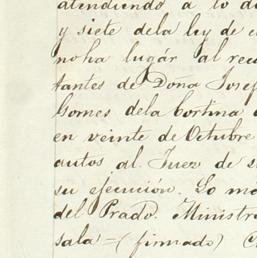 atendiendo a lo d
y siete dela ley de e
noha lugár al recu
tantes de Doña Josef
Gomes dela Cortina
en veinte de Octubre
autos al Juez de s
su ejecución. Lo ma
del Prado. Ministr
sala=(firmado) C